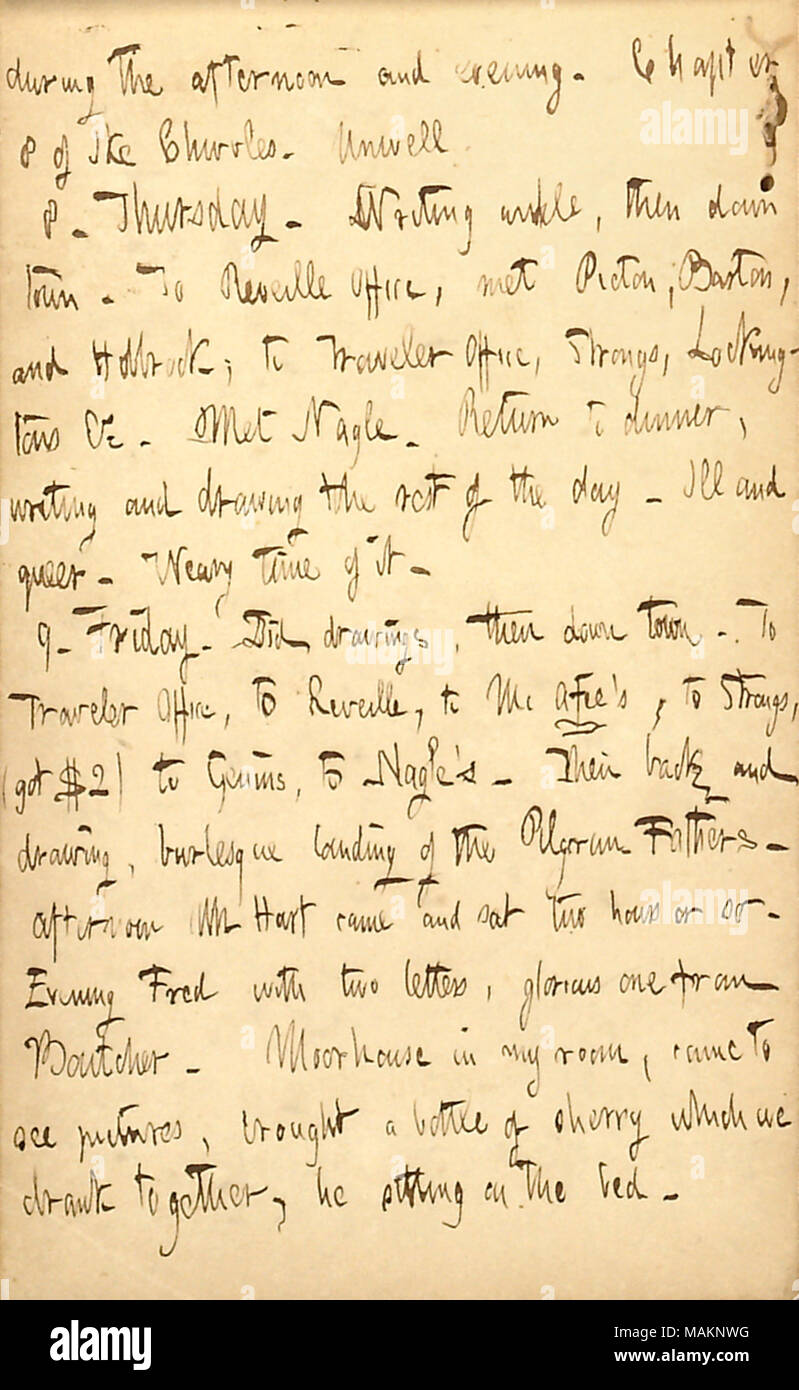 during the afternoon and evening. Chapter
8 of Ike Chivvles. Unwell.
8. Thursday. Writing awhile, then down
town. To Reveille Office, met Picton, Barton,
and Holbrook; to Traveler Office, Strongs, Locking-
tons &c. Met Nagle. Return to dinner,
writing and drawing the rest of the day. Ill and
queer. Weary time of it.
9. Friday. Did drawings, then down town. To
Traveler Office, to Reveille, to Mc Afee's, to Strongs,
(got $2) to Genins, to Nagle's. Then back and
drawing, burlesque landing of the Pilgrim Fathers.
Afternoon Mr Hart came and sat two hours or so.
Evening Fred with two letters, glorious one from
Boutcher. Moorhouse in my room, came to
see pictures, brought a bottle of sherry which we
drank together, he sitting on the bed.
alamy
Image ID: MAKNWG
www.alamy.com